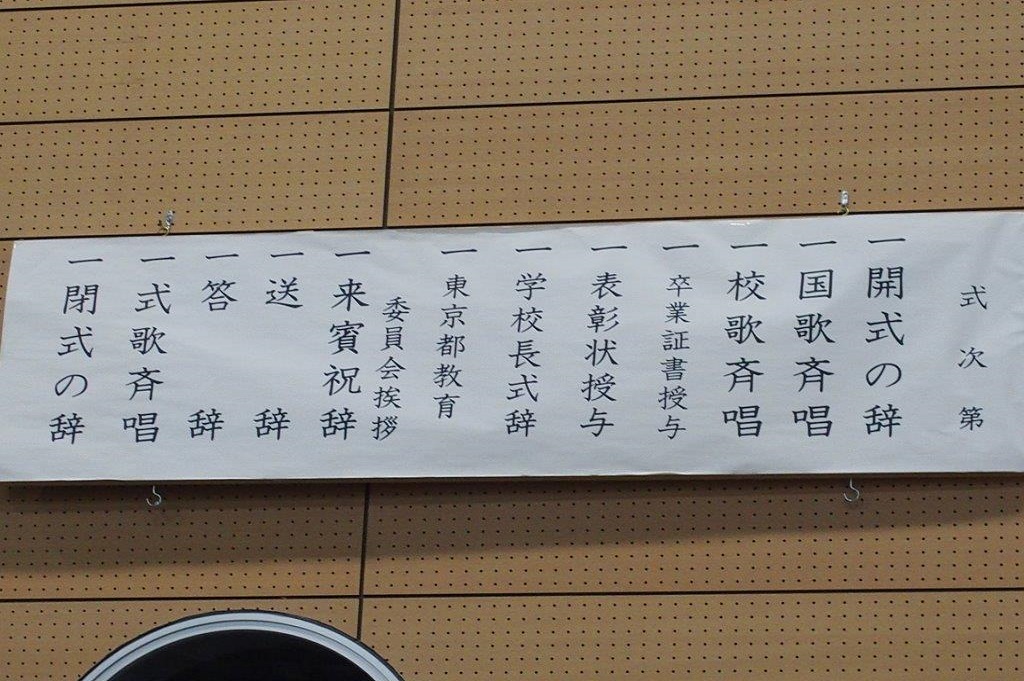 式次第
一開式の辞
一国歌斉唱
一校歌斉唱
一卒業証書授与
一表彰状授与
一学校長式辞
一東京都教育
委員会挨拶
一来賓祝辞
一送辞
一答辞
一式歌斉唱
一閉式の辞